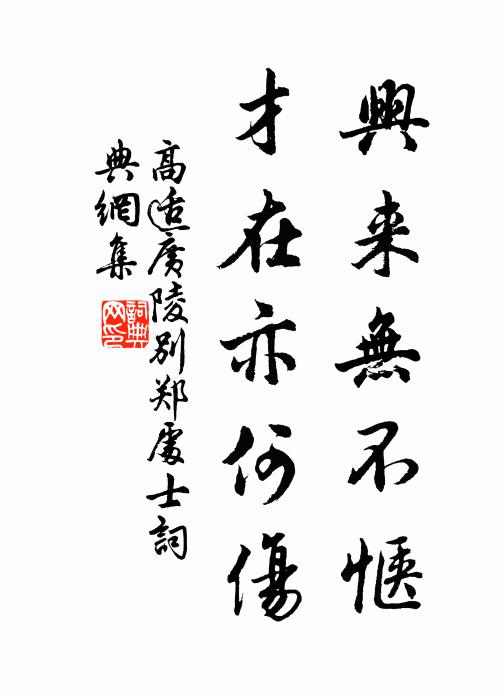 興来無不惬
才在亦何傷
高适廣陵別郑處士詞
典網集
詞典
网印